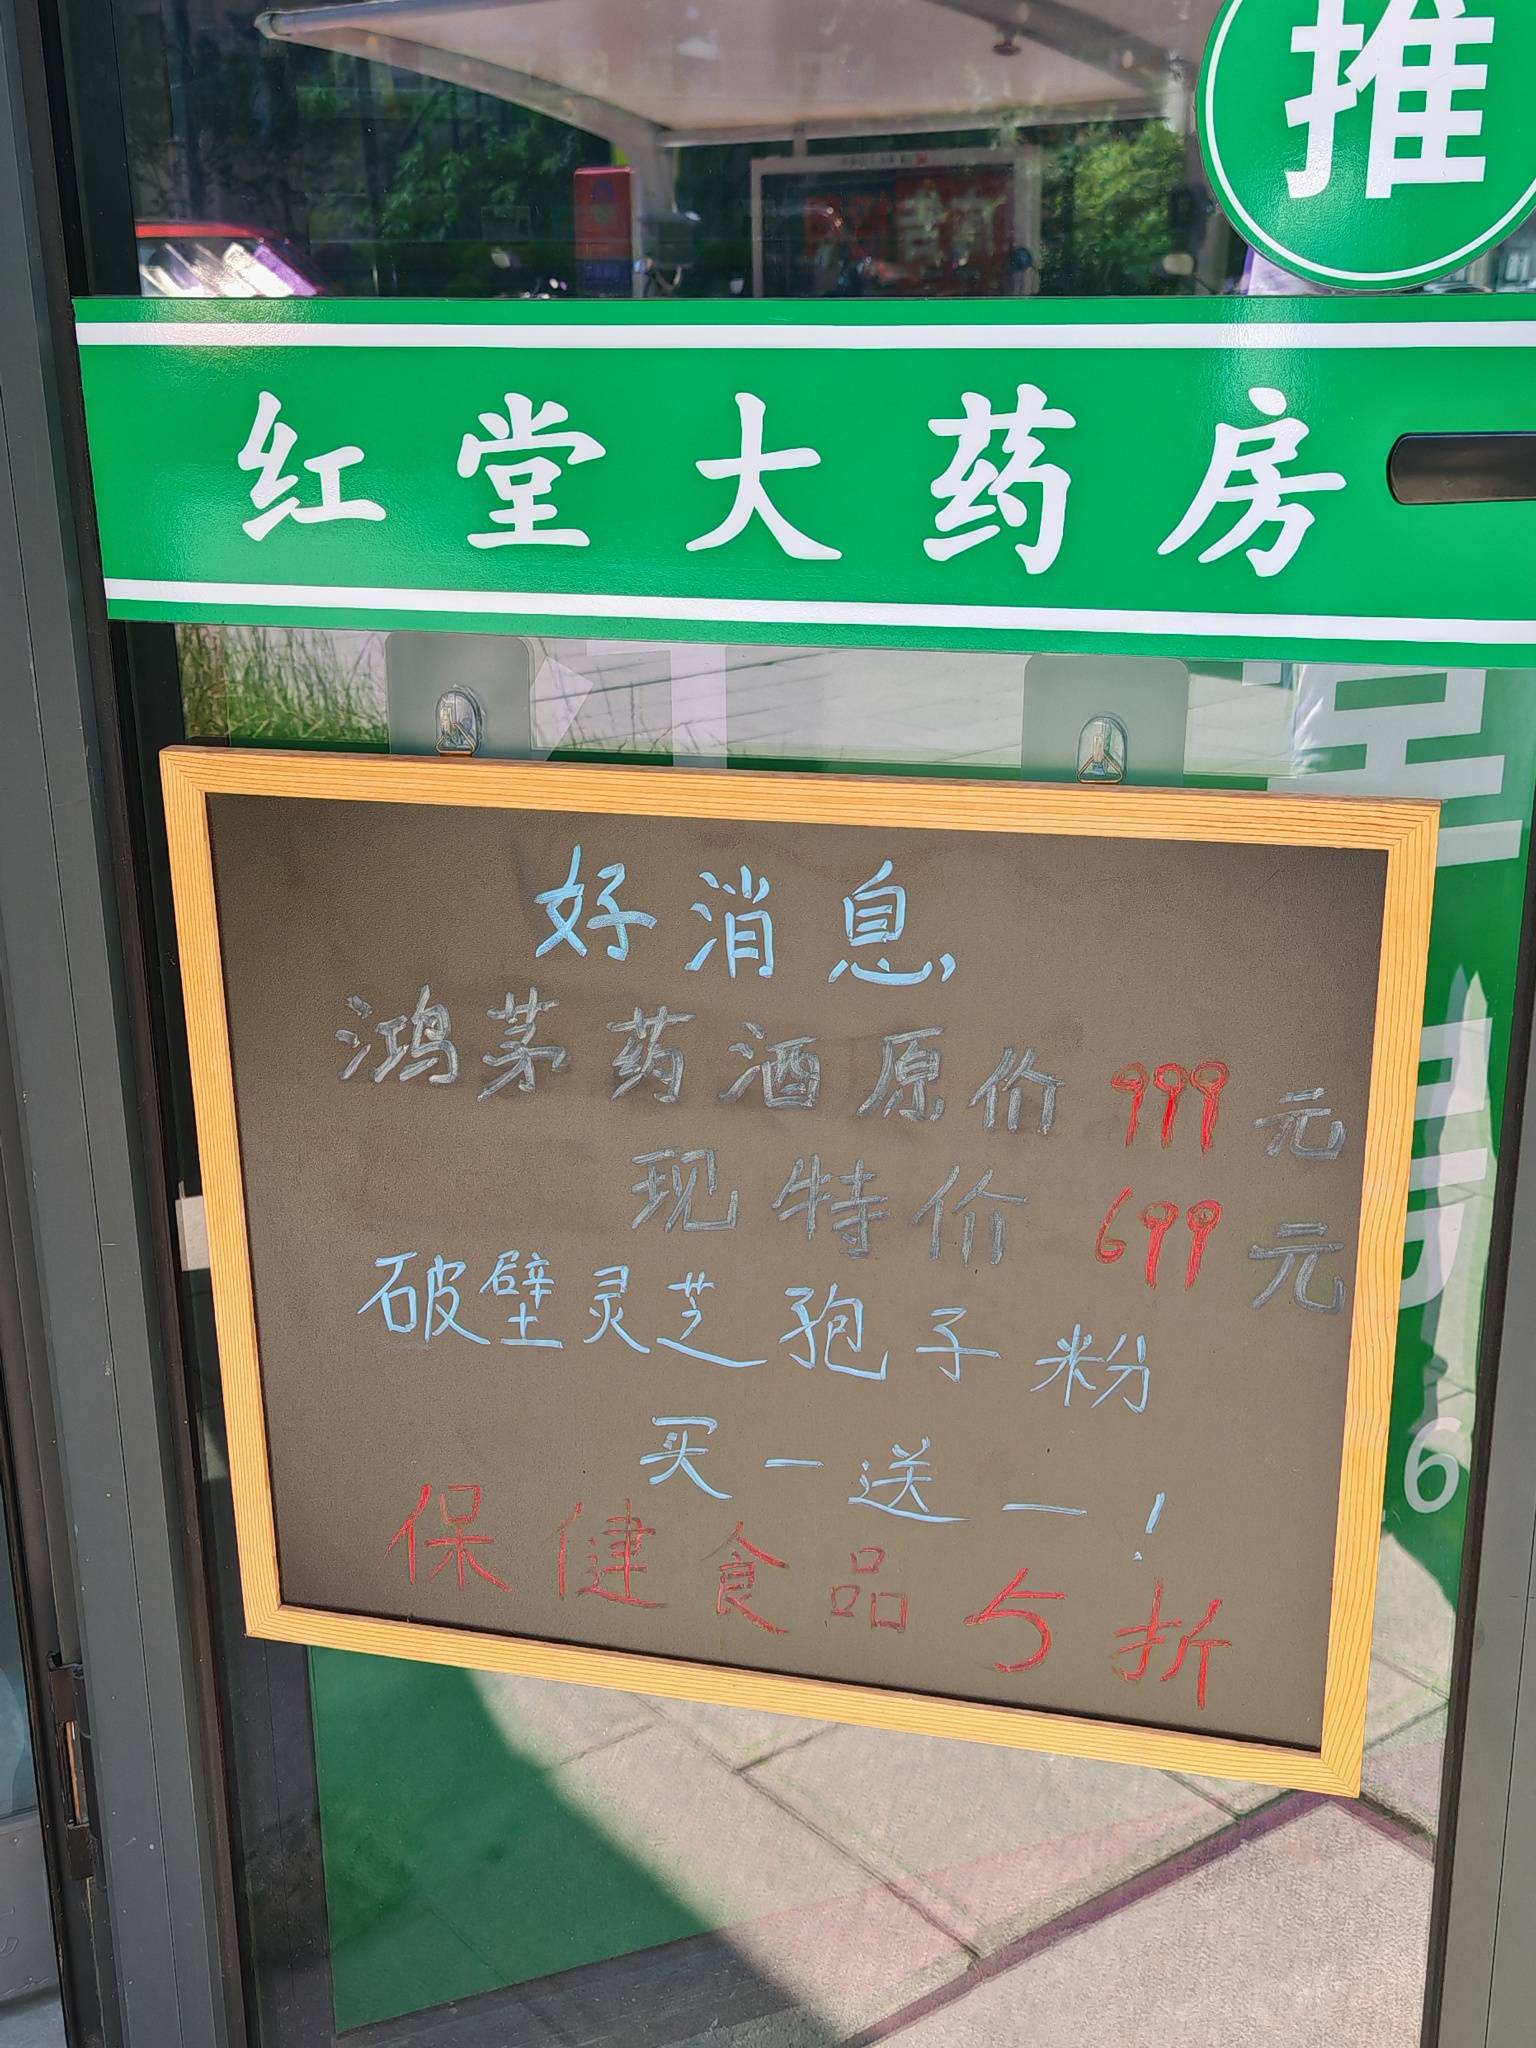 推
红堂大药房
好消息,
鸿茅药酒原价999元
现特价699元
破壁灵芝孢子粉
买一送一!
保健食品5折
6